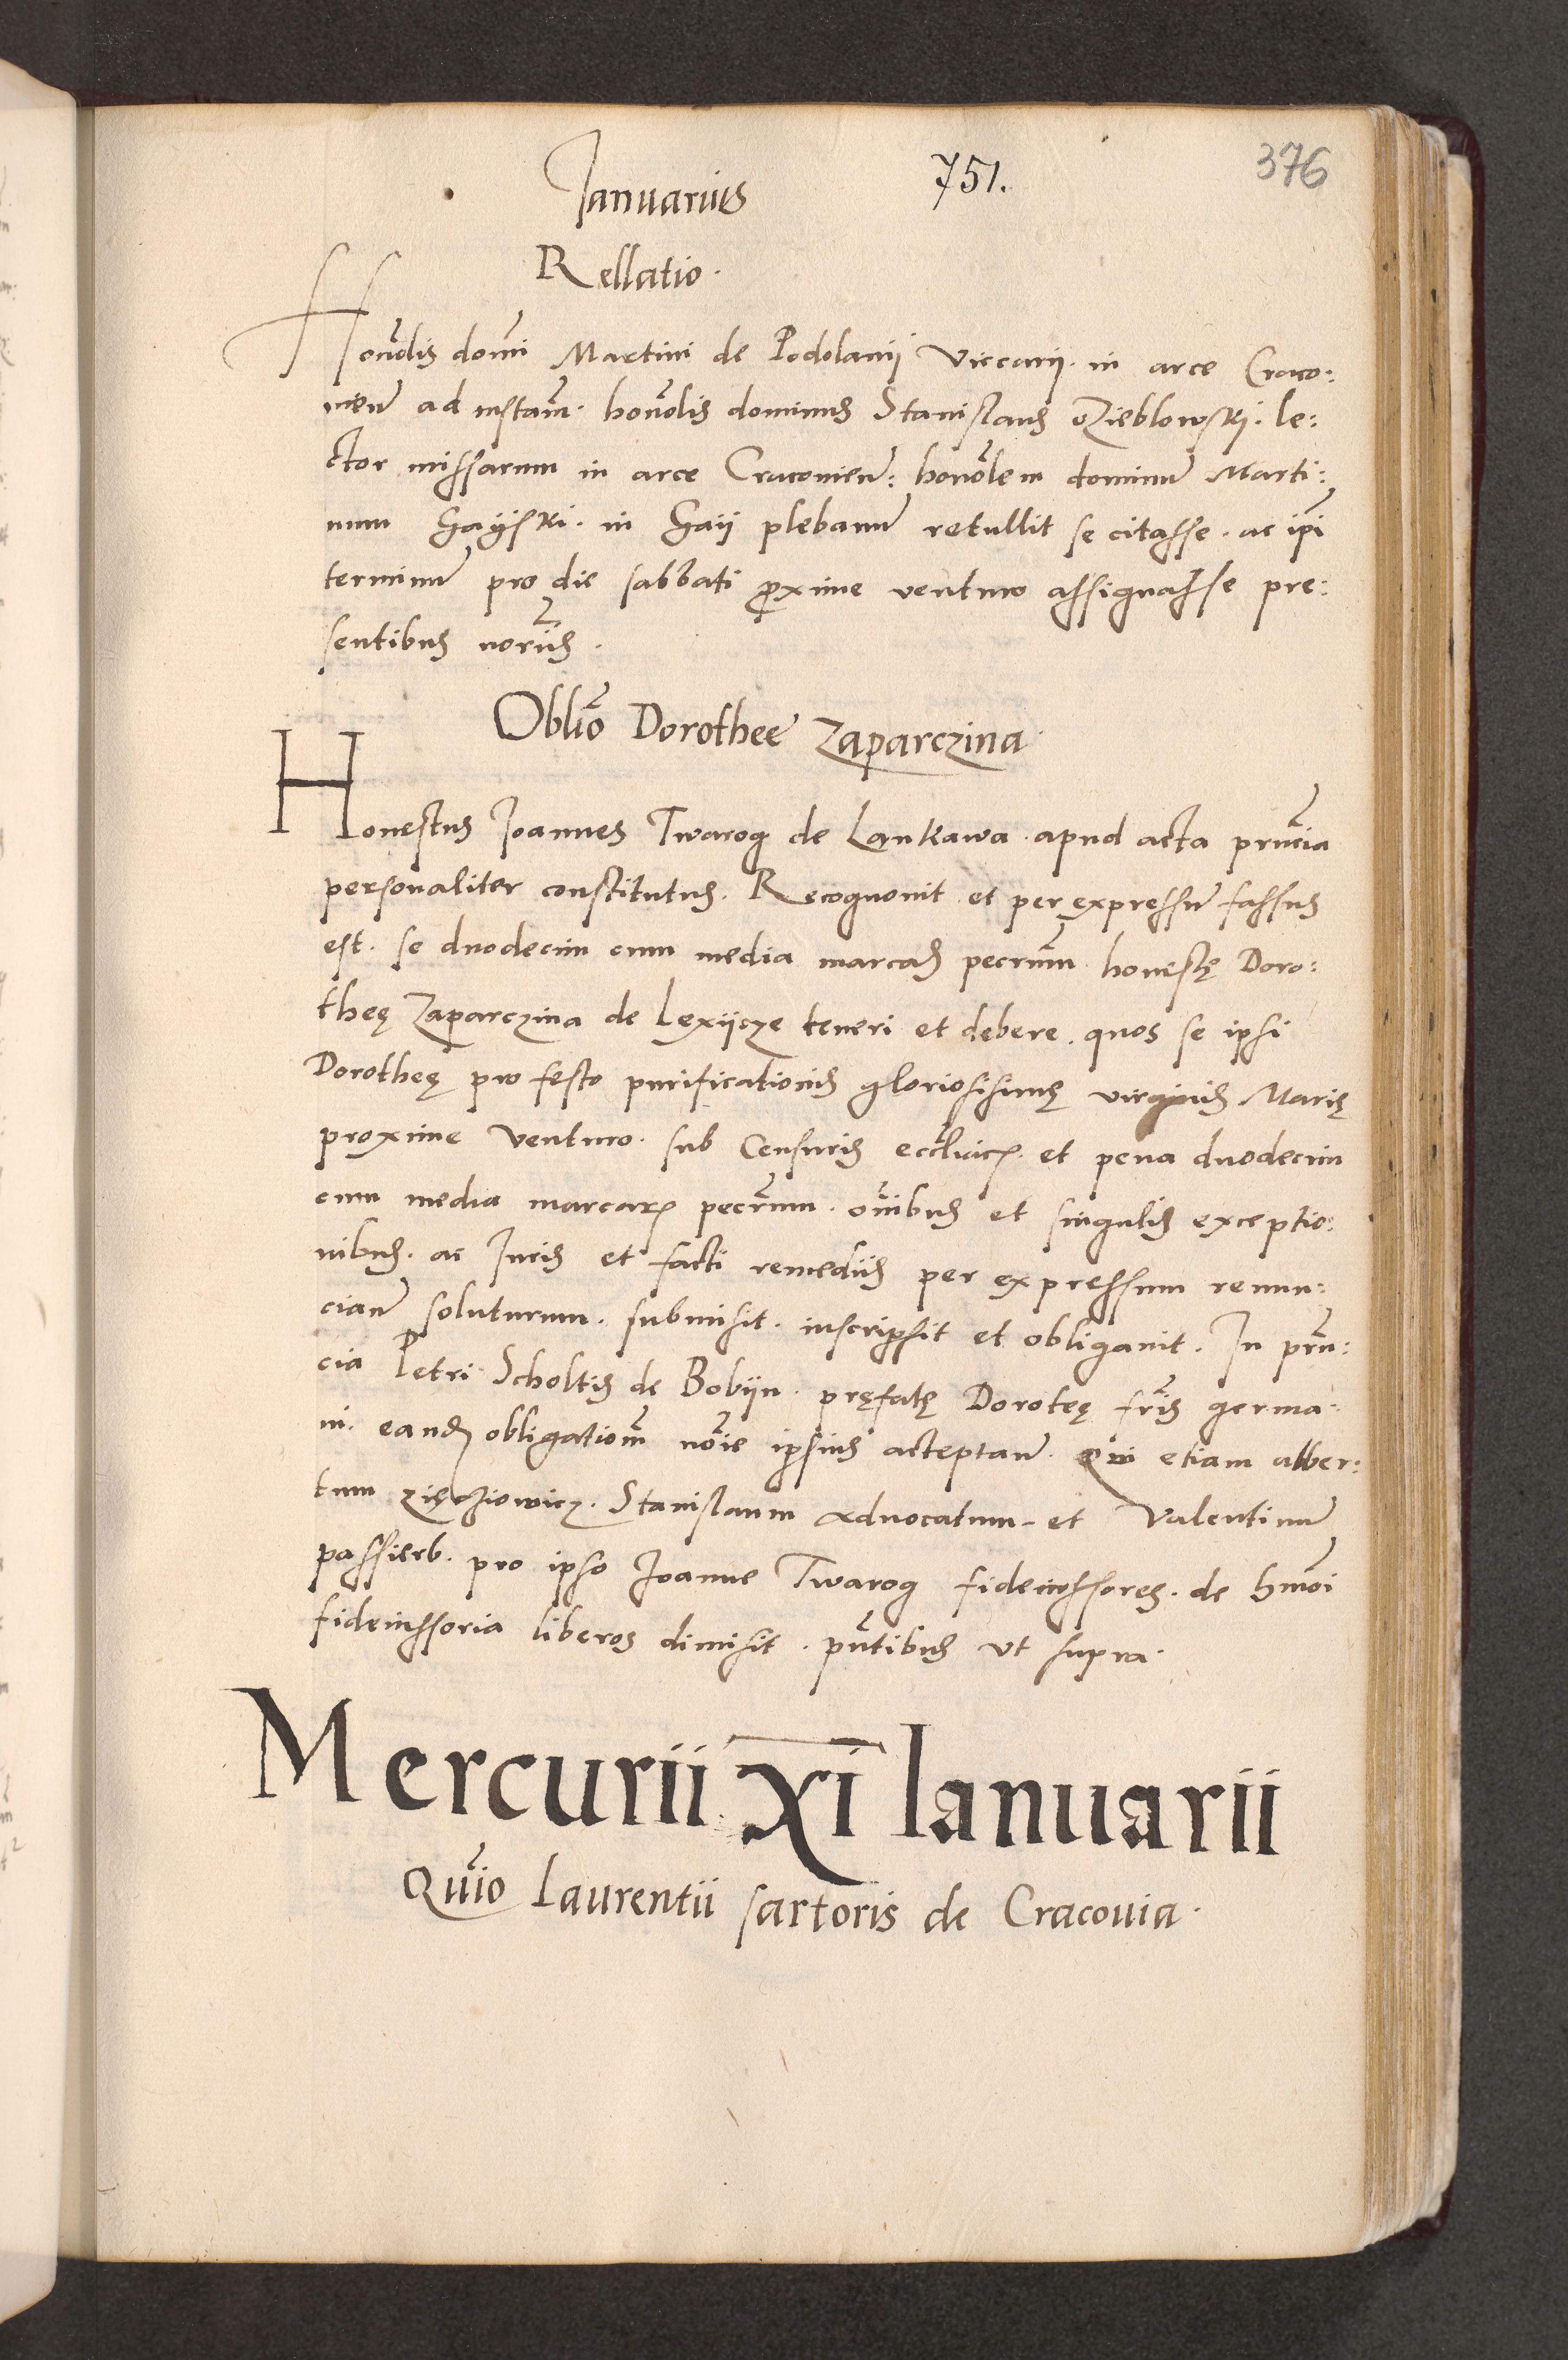 Januarius 751. 376
Rellatio.
Honorlis domi Martini de Podolanij Viccarij. in arce Craco:
nien ad instam. honorlis dominus Stanislaus Dzieblowski. le:
ctor missarum in arce Cracovien: honorlem dominu Marti:
num Gayski. in Gaij plebanu retullit se citasse. ac ipi
terminu pro die sabbati proxime venturo assignasse pre:
sentibus noriis.
Oblio Dorothee Zaparczina
Honestus Joannes Twarog de Lankawa. apud acta prncia
personaliter constitutus. Recognovit et per expressu fassus
est. se duodecim cum media marcas pecrum. honestę Doro:
theę Zaparczina de Lexijcze teneri et debere. quos se ipsi
Dorotheę pro festo purificationis gloriosissimę virginis Marię
proxime venturo. sub Censuris eccliicis. et pena duodecim
cum media marcarum pecrum. omibus et singulis exceptio:
nibus. ac Juris et facti remediis per expressum renun:
cian soluturum. submisit. inscripsit et obligavit. In prn:
cia Petri Scholtis de Bobijn. pręfatę Doroteę fris germa:
ni. eandem obligatiom noie ipsius acceptan. Qui etiam alber:
tum Zięcziowicz. Stanislaum advocatum et Valentinu
passierb. pro ipso Joanne Twarog fideiussores. de hmoi
fideiussoria liberos dimisit. pntibus ut supra.
Mercurii xi Ianuarii
Quio Laurentii sartoris de Cracovia.